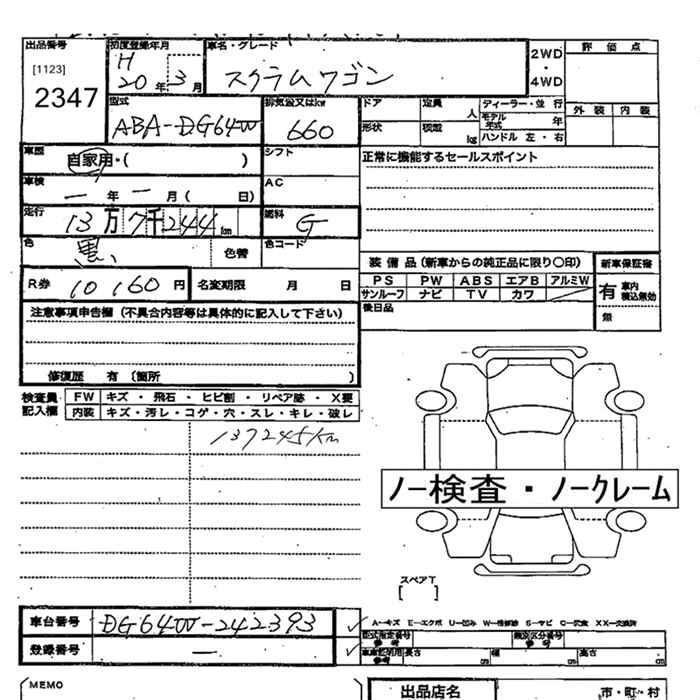 出品番号 初度登録年月 車名・グレード 2WD・4WD 評価点
[1123]
2347
H 20年 3月
スクラムワゴン
外装 内装
型式 排気量又はkw ドア 定員 人 ディーラー・並行
ABA-DG64W 660
形状 積載 kg モデル年式 年
ハンドル 左・右
車歴 自家用・( ) シフト 正常に機能するセールスポイント
車検 一年一月( 日) AC
走行 13万7千244km 燃料 G
色 黒 色替 色コード
装備品(新車からの純正品に限り〇印) 新車保証書
PS PW ABS エアB アルミW 有 車内積込無効
サンルーフ ナビ TV カワ 無
後日品
R券 10,160円 名変期限 月 日
注意事項申告欄(不具合内容等は具体的に記入して下さい)
修復歴 有(箇所 )
検査員記入欄 FW キズ・飛石・ヒビ割・リペア跡・X要
内装 キズ・汚レ・コゲ・穴・スレ・キレ・破レ
137245Km
ノー検査・ノークレーム
スペアT
[ ]
車台番号 DG64W-242393
A-キズ E-エクボ U-凹み
登録番号 —
型式指定番号 参考 類別区分番号 参考
車庫証明用 参考 長さ cm 幅 cm 高さ cm
MEMO 出品店名 市・町・村